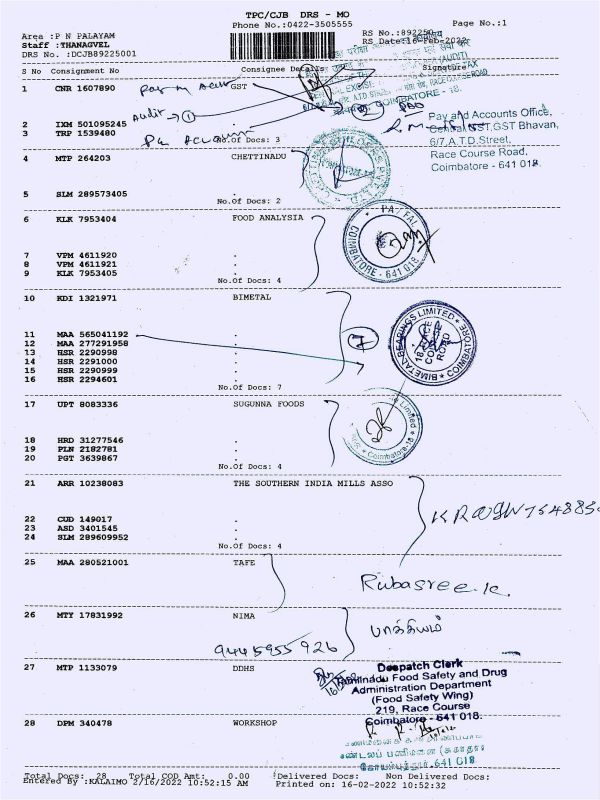 TPC/CJB DRS - MO
Phone No.:0422-3505555
Page No.:1
Area :P N PALAYAM
Staff :THANAGVEL
DRS No. :DCJB89225001
RS No.:892250
RS Date:16-Feb-2022
S No Consignment No Consignee Details Signature
1 CNR 1607890 GST
Audit - 1
2 IXM 501095245 .
3 TRP 1539480 .
No.Of Docs: 3
Pay and Accounts Office,
Central GST, GST Bhavan,
6/7, A.T.D. Street,
Race Course Road,
Coimbatore - 641 018.
4 MTP 264203 CHETTINADU
5 SLM 289573405 .
No.Of Docs: 2
6 KLK 7953404 FOOD ANALYSIA
PA / FAL
COIMBATORE - 641 018
7 VPM 4611920 .
8 VPM 4611921 .
9 KLK 7953405 .
No.Of Docs: 4
10 KDI 1321971 BIMETAL
7
BIMETAL BEARINGS LIMITED
COIMBATORE
18, RACE COURSE ROAD
11 MAA 565041192 .
12 MAA 277291958 .
13 HSR 2290998 .
14 HSR 2291000 .
15 HSR 2290999 .
16 HSR 2294601 .
No.Of Docs: 7
17 UPT 8083336 SUGUNNA FOODS
Limited
Coimbatore-18
18 HRD 31277546 .
19 PLN 2182781 .
20 PGT 3639867 .
No.Of Docs: 4
21 ARR 10238083 THE SOUTHERN INDIA MILLS ASSO
22 CUD 149017 .
23 ASD 3401545 .
24 SLM 289609952 .
No.Of Docs: 4
25 MAA 280521001 TAFE
Rubasree.K.
26 MTY 17831992 NIMA
பாக்கியம்
9445955926
27 MTP 1133079 DDHS
Despatch Clerk
Tamilnadu Food Safety and Drug
Administration Department
(Food Safety Wing)
219, Race Course
Coimbatore - 641 018.
28 DPM 340478 WORKSHOP
641 018
Total Docs: 28 Total COD Amt: 0.00 Delivered Docs: Non Delivered Docs:
Entered By :KALAIMO 2/16/2022 10:52:15 AM Printed on: 16-02-2022 10:52:32